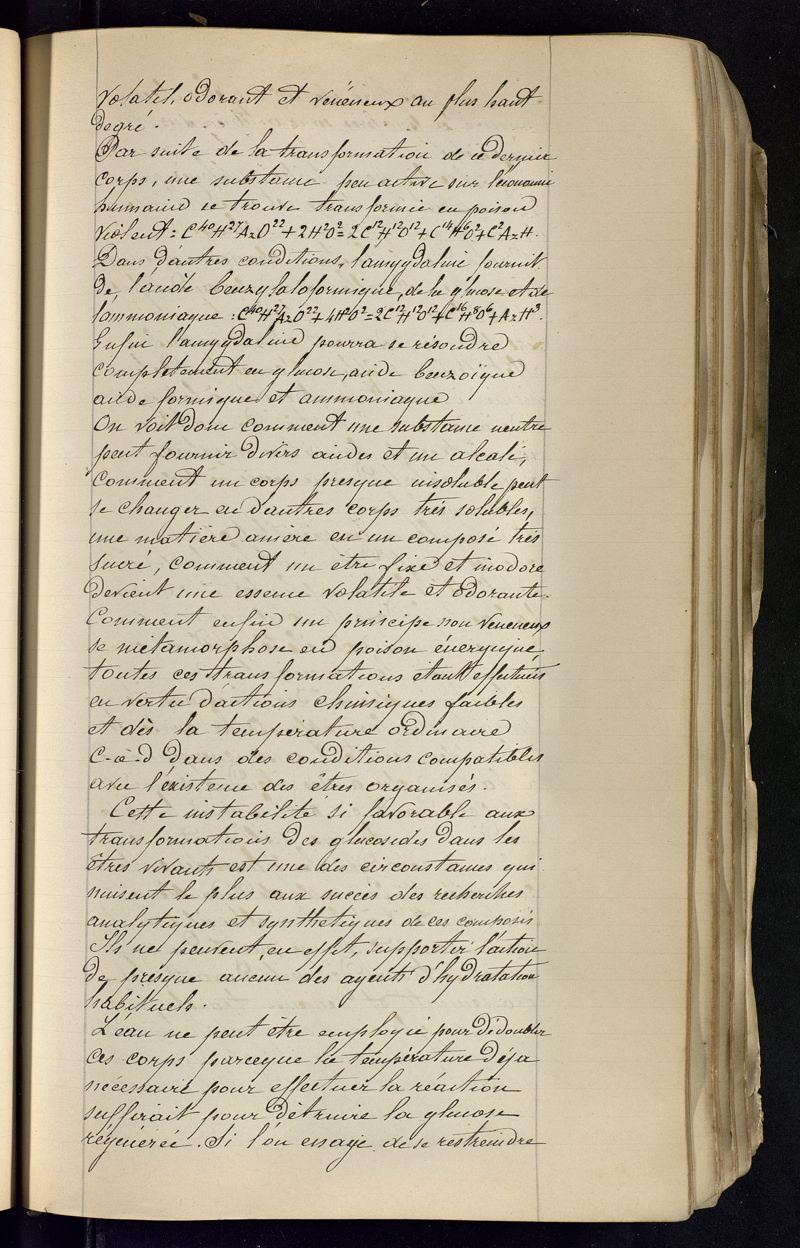 volatil, odorant et vénéneux au plus haut
degré.
Par suite de la transformation de ce dernier
corps, une substance peu active sur l'économie
humaine se trouve transformée en poison
violent = C⁴⁰H²⁷AzO²² + 2H²O² = 2C¹²H¹²O¹² + C¹⁴H⁶O² + C²AzH.
Dans d'autres conditions, l'amygdaline fournit
de l'acide benzylaloformique, de la glucose et de
l'ammoniaque : C⁴⁰H²⁷AzO²² + 4H²O² = 2C¹²H¹²O¹² + C¹⁶H⁸O⁶ + AzH³.
Enfin l'amygdaline pourra se résoudre
complètement en glucose, acide benzoïque
acide formique et ammoniaque
On voit donc comment une substance neutre
peut fournir divers acides et un alcali,
comment un corps presque insoluble peut
se changer en d'autres corps très solubles,
une matière amère en un composé très
sucré, comment un être fixe et inodore
devient une essence volatile et odorante.
Comment enfin un principe non vénéneux
se métamorphose en poison énergique
toutes ces transformations étant effectuées
en vertu d'actions chimiques faibles
et dès la température ordinaire
c-à-d dans des conditions compatibles
avec l'existence des êtres organisés.
Cette instabilité si favorable aux
transformations des glucosides dans les
êtres vivants est une des circonstances qui
nuisent le plus aux succès des recherches
analytiques et synthétiques de ces composés
Ils ne peuvent, en effet, supporter l'action
de presque aucun des agents d'hydratation
habituels.
L'eau ne peut être employée pour dédoubler
ces corps parceque la température déja
nécessaire pour effectuer la réaction
suffirait pour détruire la glucose
régénérée. Si l'on essaye de se restreindre